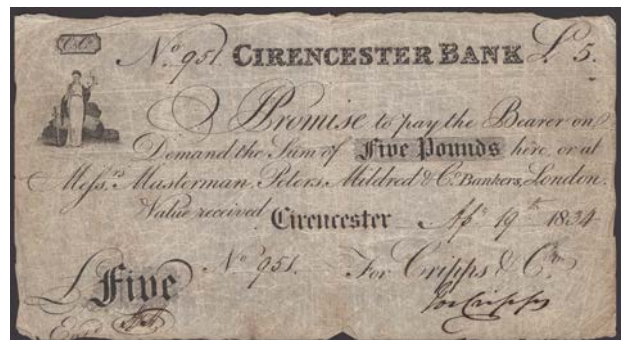 C&Co
No. 951. CIRENCESTER BANK £5.
I Promise to pay the Bearer on
Demand the Sum of Five Pounds here, or at
Messrs. Masterman, Peters, Mildred & Co. Bankers, London.
Value received Cirencester Apr 19th 1834
No 951. For Cripps & Co.
£ Five Jos Cripps
Entd